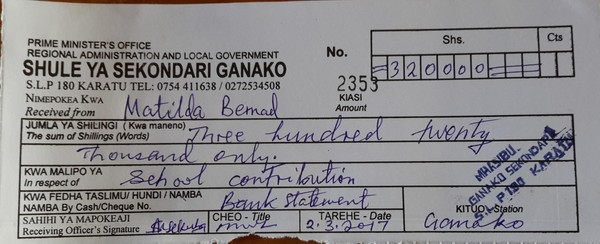 PRIME MINISTER'S OFFICE
REGIONAL ADMINISTRATION AND LOCAL GOVERNMENT
SHULE YA SEKONDARI GANAKO
S.L.P 180 KARATU TEL: 0754 411638 / 0272534508
No. 2353
Shs. Cts
=320000==
KIASI
Amount
NIMEPOKEA KWA
Received from Matilda Bernad
JUMLA YA SHILINGI ( Kwa maneno)
The sum of Shillings (Words) Three hundred twenty
thousand only.
KWA MALIPO YA
In respect of School contribution
MHASIBU
GANAKO SEKONDARI
S.L.P. 190 KARATU
KWA FEDHA TASLIMU/ HUNDI / NAMBA
NAMBA By Cash/Cheque No. Bank statement
SAHIHI YA MAPOKEAJI
Receiving Officer's Signature
CHEO - Title
TAREHE - Date
2.3.2017
KITUO - Station
Ganako